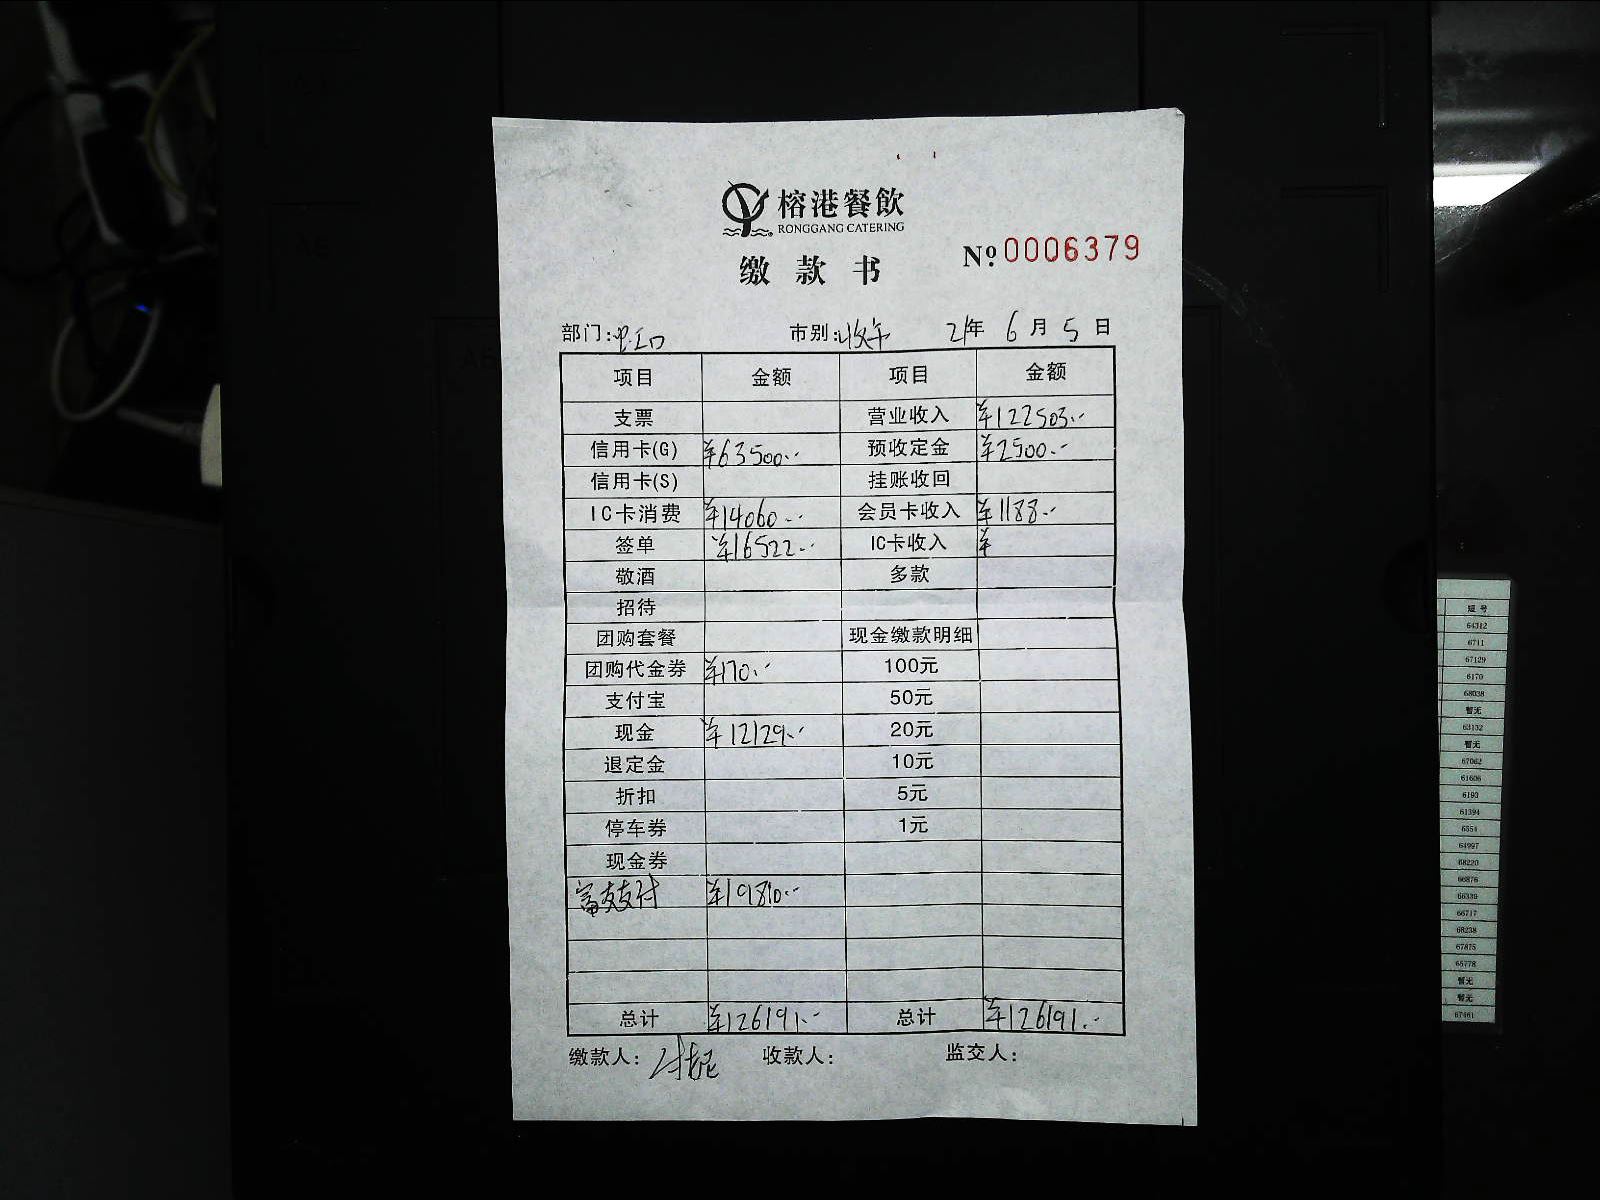 榕港餐飲
RONGGANG CATERING
缴款书
№ 0006379
部门：虹口 市别： 21年 6月 5日
项目 金额 项目 金额
支票 营业收入 ¥122503.-
信用卡(G) ¥63500.- 预收定金 ¥2500.-
信用卡(S) 挂账收回
IC卡消费 ¥14060.- 会员卡收入 ¥1188.-
签单 ¥16522.- IC卡收入 ¥
敬酒 多款
招待
团购套餐 现金缴款明细
团购代金券 ¥170.- 100元
支付宝 50元
现金 ¥12129.- 20元
退定金 10元
折扣 5元
停车券 1元
现金券
富友支付 ¥19810.-
总计 ¥126191.- 总计 ¥126191.-
缴款人： 收款人： 监交人：
短号
64312
6711
67129
6170
68038
暂无
63132
暂无
67062
61606
6193
61394
6554
64997
68220
66876
66339
66717
68238
67875
65778
暂无
暂无
67461